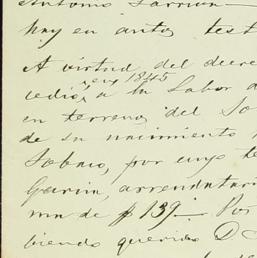 Antonio Larriva
hay en autos test
A virtud del decre
cedió, en 1845 a la Labor d
en terreno del So
de su nacimiento
Tobaco, por cuyo te
Garcia, arrendatari
ma de $139 — Por
biendo querido D